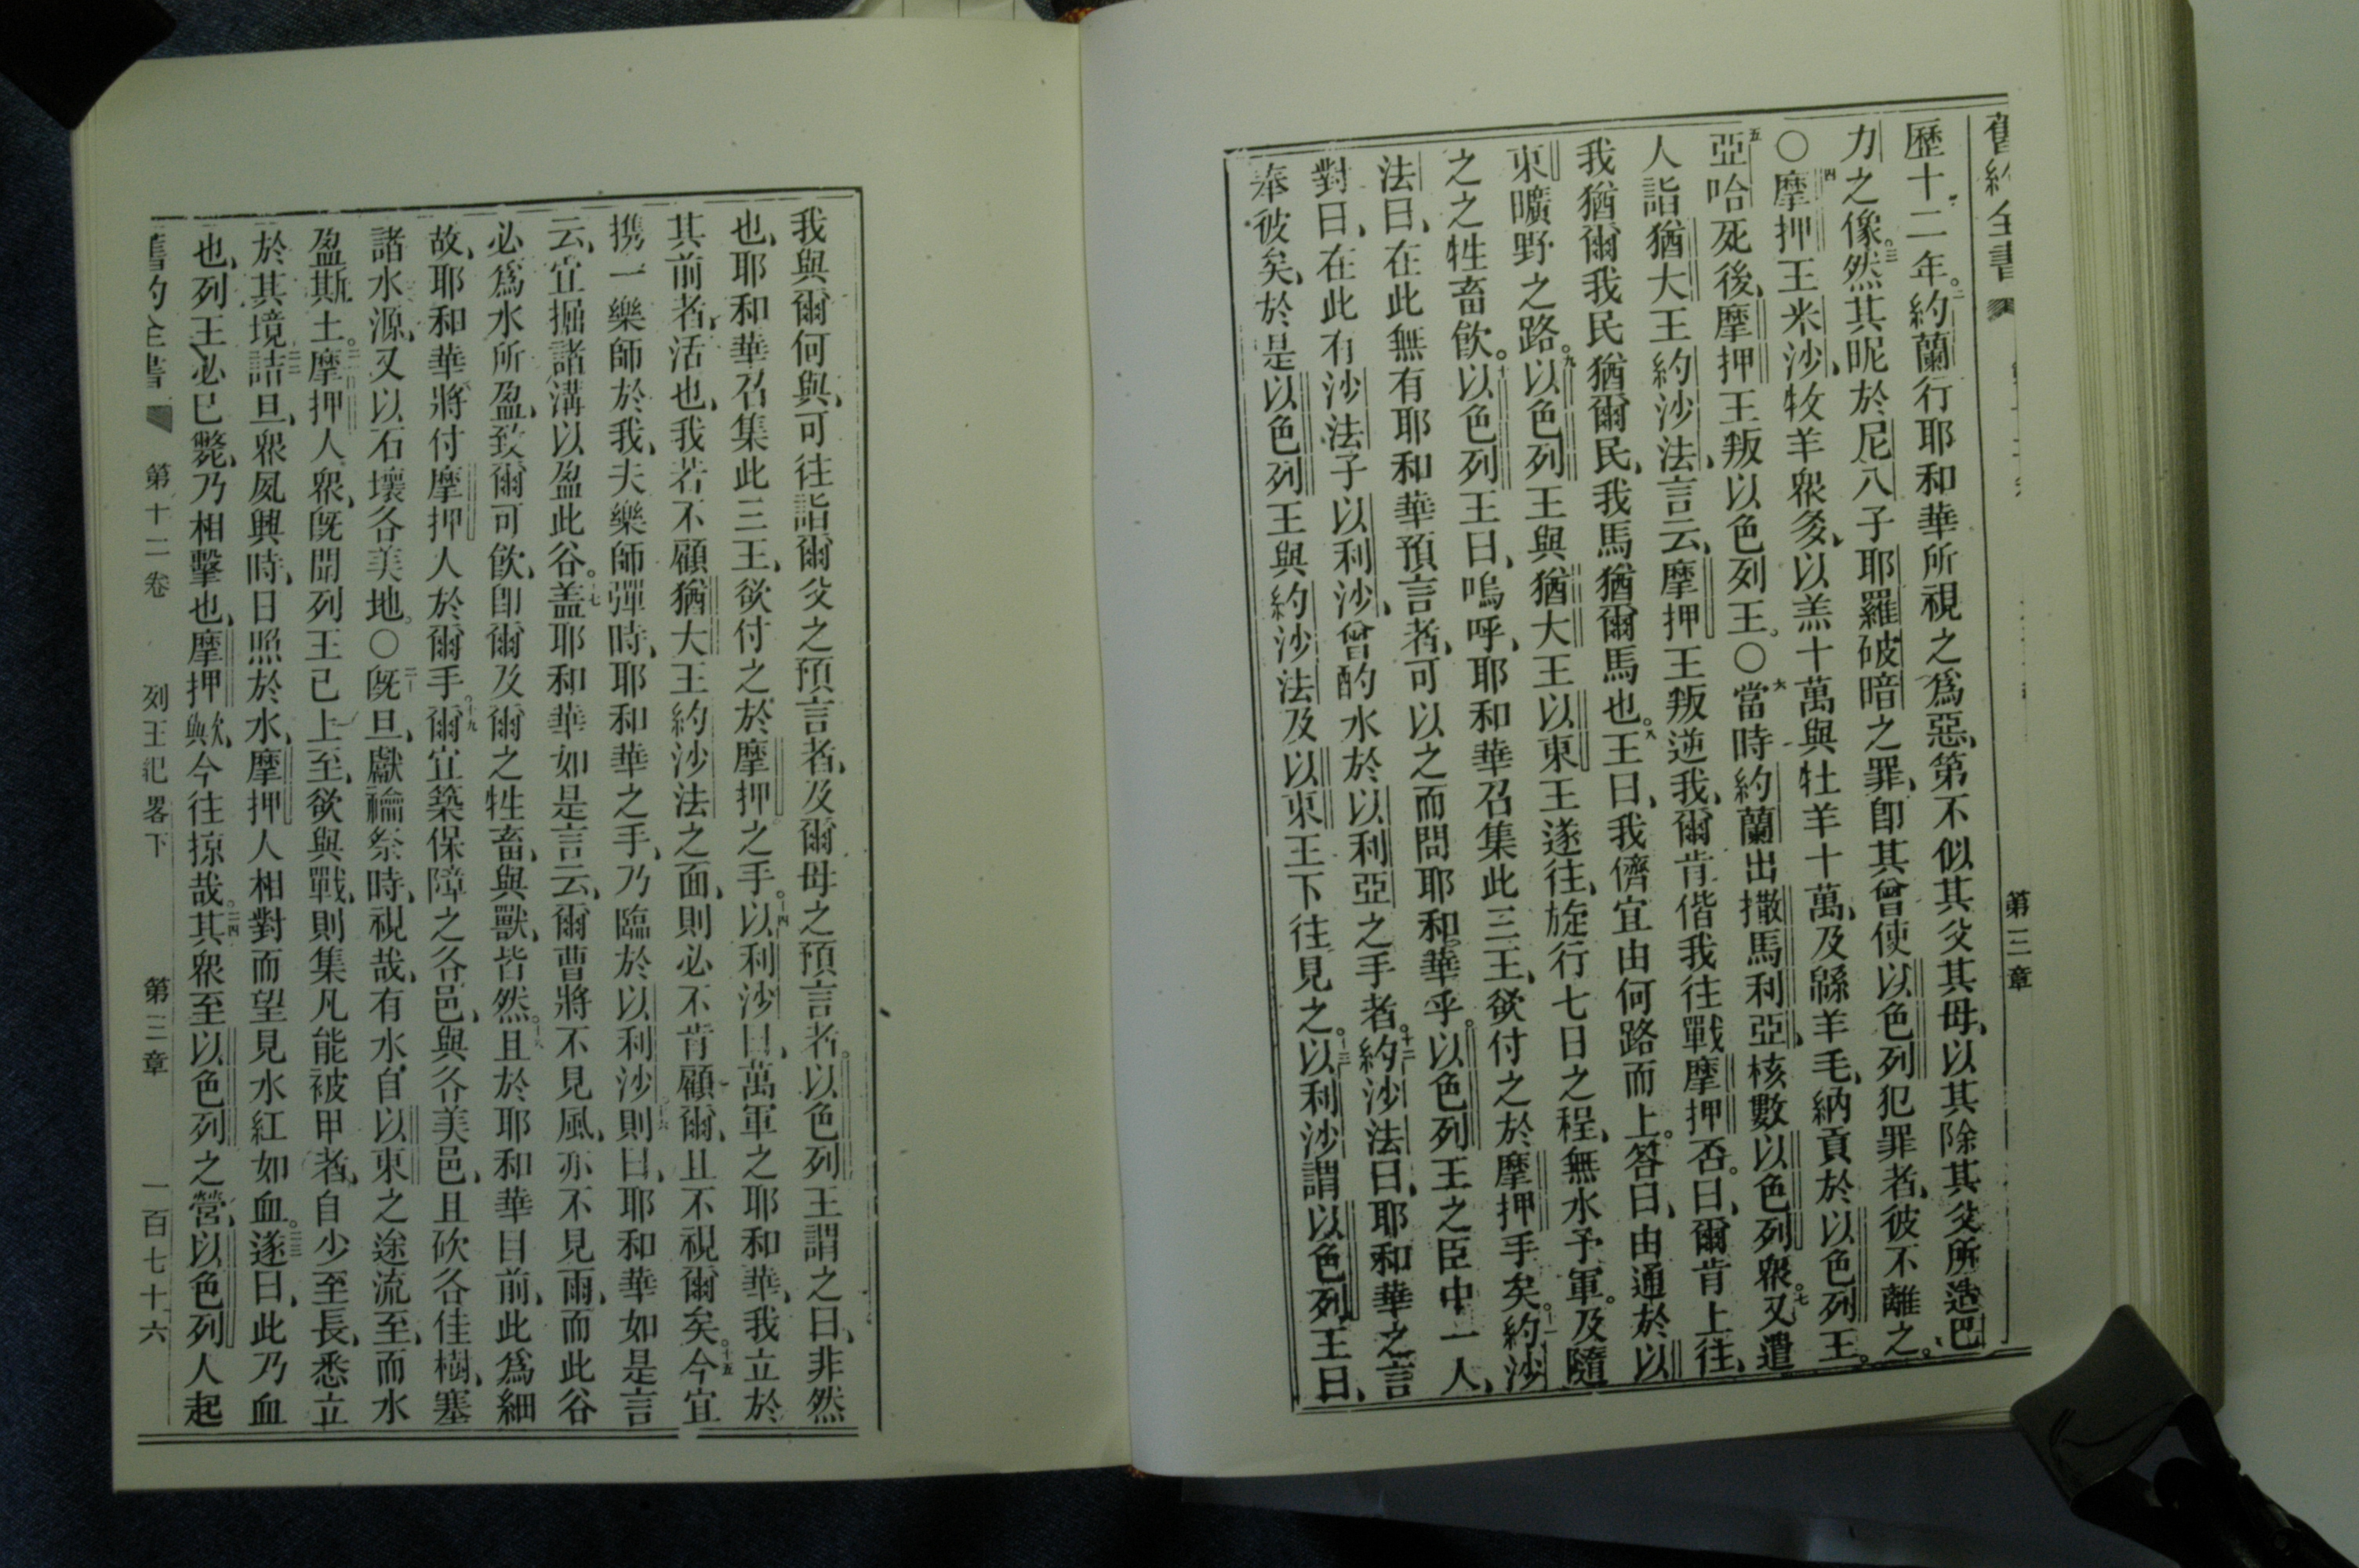 舊約全書
第三章
歷十二年。二約蘭行耶和華所視之爲惡、第不似其父其母、以其除其父所造巴
力之像。三然其昵於尼八子耶羅破暗之罪、卽其曾使以色列犯罪者、彼不離之。
〇四摩押王米沙、牧羊衆多、以羔十萬與牡羊十萬、及緜羊毛、納貢於以色列王。
五亞哈死後、摩押王叛以色列王。〇六當時約蘭出撒馬利亞、核數以色列衆。七又遣
人詣猶大王約沙法、言云、摩押王叛逆我、爾肯偕我往戰摩押否。曰、爾肯上往、
我猶爾我民猶爾民、我馬猶爾馬也。八王曰、我儕宜由何路而上。答曰、由通於以
東曠野之路。九以色列王與猶大王以東王遂往、旋行七日之程、無水予軍。及隨
之之牲畜飲。十以色列王曰、嗚呼、耶和華召集此三王、欲付之於摩押手矣。十一約沙
法曰、在此無有耶和華預言者、可以之而問耶和華乎。以色列王之臣中一人、
對曰、在此有沙法子以利沙、曾酌水於以利亞之手者。十二約沙法曰、耶和華之言
奉彼矣、於是以色列王與約沙法及以東王下往見之。十三以利沙謂以色列王曰、
我與爾何與、可往詣爾父之預言者、及爾母之預言者。以色列王謂之曰、非然
也、耶和華召集此三王、欲付之於摩押之手。十四以利沙曰、萬軍之耶和華、我立於
其前者、活也、我若不顧猶大王約沙法之面、則必不肯顧爾、且不視爾矣。十五今宜
携一樂師於我、夫樂師彈時、耶和華之手、乃臨於以利沙。十六則曰、耶和華如是言
云、宜掘諸溝以盈此谷。十七盖耶和華如是言云、爾曹將不見風、亦不見雨、而此谷
必爲水所盈、致爾可飲、卽爾及爾之牲畜、與獸、皆然。十八且於耶和華目前、此爲細
故、耶和華將付摩押人於爾手。十九爾宜築保障之各邑、與各美邑、且砍各佳樹、塞
諸水源、又以石壞各美地。〇二十旣旦、獻禴祭時、視哉、有水自以東之途流至、而水
盈斯土。二一摩押人衆、旣聞列王已上至、欲與戰、則集凡能被甲者、自少至長、悉立
於其境。二二詰旦、衆夙興時、日照於水、摩押人相對而望見水紅如血。二三遂曰、此乃血
也、列王必已斃、乃相擊也、摩押歟、今往掠哉。二四其衆至以色列之營、以色列人起
舊約全書 第十二卷 列王紀畧下 第三章 一百七十六